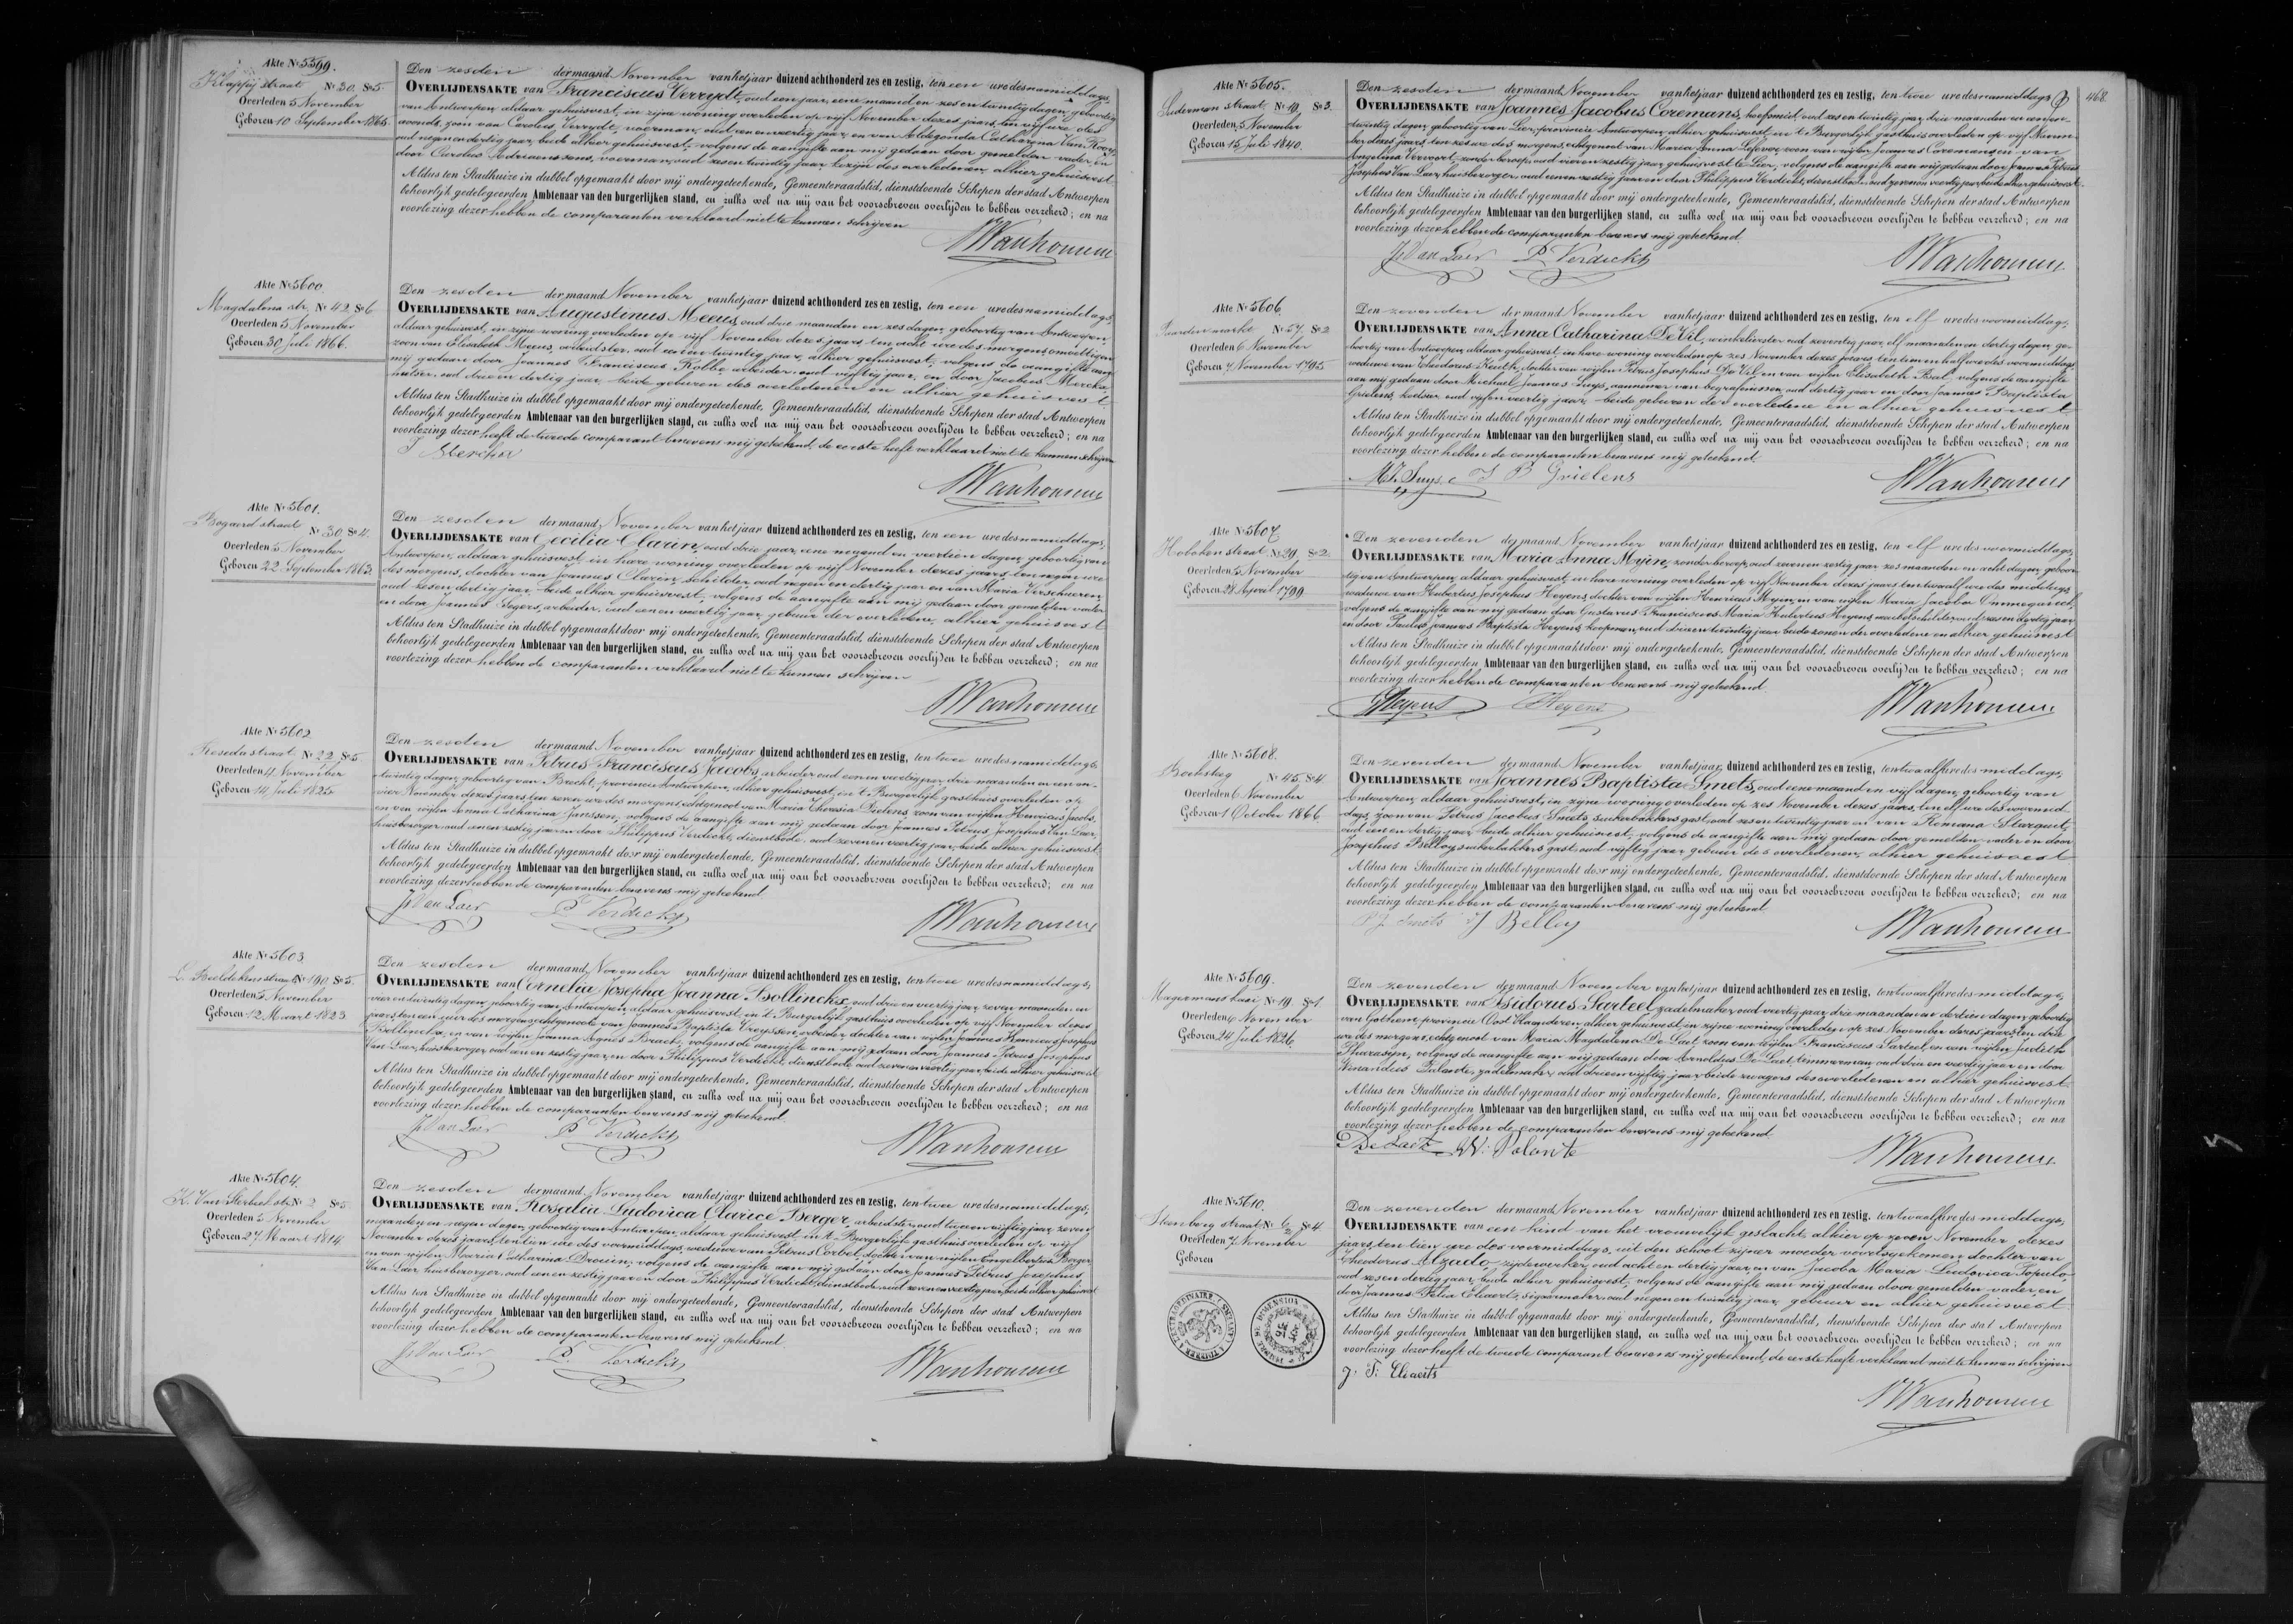 Akte Nr 5599.
Klapdij straat Nr 30. Sn 5.
Overleden 5 November
Geboren 10 September 1865.
Den zesden der maand November van het jaar duizend achthonderd zes en zestig, ten een ure des namiddags,
OVERLIJDENSAKTE van Franciscus Verrydt, oud een jaar, eene maand en zes en twintig dagen, geboortig
van Antwerpen, aldaar gehuisvest, in zijne woning overleden op vijf November dezes jaars, ten vijf ure des
avonds, zoon van Carolus Verrydt, voerman, oud een en veertig jaar, en van Aldegonda Catharina Van
oud negen en dertig jaar, beide alhier gehuisvest; volgens de aangifte aan mij gedaan door gemelden vader, en
door Carolus Adriaenssens, voerman, oud zes en twintig jaar, kozijn des overledenen, alhier gehuisvest
Aldus ten Stadhuize in dubbel opgemaakt door mij ondergeteekende, Gemeenteraadslid, dienstdoende Schepen der stad Antwerpen
behoorlijk gedelegeerden Ambtenaar van den burgerlijken stand, en zulks wel na mij van het voorschreven overlijden te hebben verzekerd; en na
voorlezing dezer hebben de comparanten verklaard niet te kunnen schrijven
Akte Nr 5600.
Magdalena str. Nr 42 Sn 6
Overleden 5 November
Geboren 30 Juli 1866.
Den zesden der maand November van het jaar duizend achthonderd zes en zestig, ten een ure des namiddags,
OVERLIJDENSAKTE van Augustinus Meeus, oud drie maanden en zes dagen, geboortig van Antwerpen
aldaar gehuisvest, in zijne woning overleden op vijf November dezes jaars, ten acht ure des morgens, onwettigen
zoon van Elisabeth Meeus, arbeidster, oud en twintig jaar, alhier gehuisvest; volgens de aangifte aan
mij gedaan door Joannes Franciscus Robbe, arbeider, oud vijftig jaar, en door Jacobus Merckx
metser, oud drie en dertig jaar, beide geburen des overledenen en alhier gehuisvest
Aldus ten Stadhuize in dubbel opgemaakt door mij ondergeteekende, Gemeenteraadslid, dienstdoende Schepen der stad Antwerpen
behoorlijk gedelegeerden Ambtenaar van den burgerlijken stand, en zulks wel na mij van het voorschreven overlijden te hebben verzekerd; en na
voorlezing dezer heeft de tweede comparant benevens mij geteekend, de eerste heeft verklaard niet te kunnen schrijven
Akte Nr 5601.
Bogaerd straat Nr 30. Sn 4.
Overleden 5 November
Geboren 22 September 1863
Den zesden der maand November van het jaar duizend achthonderd zes en zestig, ten een ure des namiddags,
OVERLIJDENSAKTE van Cecilia Clarin, oud drie jaar, eene maand en veertien dagen, geboortig van
Antwerpen, aldaar gehuisvest, in hare woning overleden op vijf November dezes jaars, ten negen ure
des morgens, dochter van Joannes Clarin, schilder, oud negen en dertig jaar en van Maria Verschueren
oud zes en dertig jaar, beide alhier gehuisvest; volgens de aangifte aan mij gedaan door gemelden vader
en door Joannes Segers, arbeider, oud een en veertig jaar, gebuur der overledene, alhier gehuisvest
Aldus ten Stadhuize in dubbel opgemaakt door mij ondergeteekende, Gemeenteraadslid, dienstdoende Schepen der stad Antwerpen
behoorlijk gedelegeerden Ambtenaar van den burgerlijken stand, en zulks wel na mij van het voorschreven overlijden te hebben verzekerd; en na
voorlezing dezer hebben de comparanten verklaard niet te kunnen schrijven
Akte Nr 5602
Resedastraat Nr 22 Sn 5
Overleden 4 November
Geboren 14 Juli 1825
Den zesden der maand November van het jaar duizend achthonderd zes en zestig, ten twee ure des namiddags,
OVERLIJDENSAKTE van Petrus Franciscus Jacobs, arbeider, oud een en veertig jaar, drie maanden en een en
twintig dagen, geboortig van Brecht, provincie Antwerpen, alhier gehuisvest, in 't Burgerlijk gasthuis overleden op
vier November dezes jaars ten zeven ure des morgens, echtgenoot van Maria Theresia Dielens, zoon van wijlen Henricus Jacobs,
en van wijlen Anna Catharina Janssen, volgens de aangifte aan mij gedaan door Joannes Petrus Josephus Van Laer,
huisbezorger, oud een en zestig jaar en door Philippus Verdickt, dienstbode, oud zeven en veertig jaar, beide alhier gehuisvest
Aldus ten Stadhuize in dubbel opgemaakt door mij ondergeteekende, Gemeenteraadslid, dienstdoende Schepen der stad Antwerpen
behoorlijk gedelegeerden Ambtenaar van den burgerlijken stand, en zulks wel na mij van het voorschreven overlijden te hebben verzekerd; en na
voorlezing dezer hebben de comparanten benevens mij geteekend
J. Van Laer P. Verdickt
Akte Nr 5603
L. Beeldekensstraat Nr 190 Sn 5.
Overleden 5 November
Geboren 12 Maart 1823
Den zesden der maand November van het jaar duizend achthonderd zes en zestig, ten twee ure des namiddags,
OVERLIJDENSAKTE van Cornelia Josepha Joanna Bollinckx, oud drie en veertig jaar, zeven maanden en
vier en twintig dagen, geboortig van Antwerpen, aldaar gehuisvest, in 't Burgerlijk gasthuis overleden op vijf November dezes
jaars, ten een ure des morgens, echtgenoote van Joannes Baptista Vreyssen, arbeider, dochter van wijlen Joannes Henricus Josephus
Bollinckx, en van wijlen Joanna Agnes Bracke, volgens de aangifte aan mij gedaan door Joannes Petrus Josephus
Van Laer, huisbezorger, oud een en zestig jaar, en door Philippus Verdickt, dienstbode, oud zeven en veertig jaar, beide alhier gehuisvest
Aldus ten Stadhuize in dubbel opgemaakt door mij ondergeteekende, Gemeenteraadslid, dienstdoende Schepen der stad Antwerpen
behoorlijk gedelegeerden Ambtenaar van den burgerlijken stand, en zulks wel na mij van het voorschreven overlijden te hebben verzekerd; en na
voorlezing dezer hebben de comparanten benevens mij geteekend
J. Van Laer P. Verdickt
Akte Nr 5604.
Nr 2 Sn 5
Overleden 5 November
Geboren 27 Maart 1814
Den zesden der maand November van het jaar duizend achthonderd zes en zestig, ten twee ure des namiddags,
OVERLIJDENSAKTE van Rosalia Ludovica Clarice Berger, arbeidster, oud twee en vijftig jaar, zeven
maanden en negen dagen, geboortig van Antwerpen, aldaar gehuisvest, in 't Burgerlijk gasthuis overleden op vijf
November dezes jaars, ten tien ure des voormiddags, weduwe van Petrus Corbel, dochter van wijlen Engelbertus Berger
en van wijlen Maria Catharina Drouin; volgens de aangifte aan mij gedaan door Joannes Petrus Josephus
Van Laer, huisbezorger, oud een en zestig jaar en door Philippus Verdickt, dienstbode, oud zeven en veertig jaar, beide alhier gehuisvest
Aldus ten Stadhuize in dubbel opgemaakt door mij ondergeteekende, Gemeenteraadslid, dienstdoende Schepen der stad Antwerpen
behoorlijk gedelegeerden Ambtenaar van den burgerlijken stand, en zulks wel na mij van het voorschreven overlijden te hebben verzekerd; en na
voorlezing dezer hebben de comparanten benevens mij geteekend.
J. Van Laer P. Verdickt
468
Akte Nr 5605.
Suderman straat Nr 19. Sn 3.
Overleden 5 November
Geboren 15 Juli 1840.
Den zesden der maand November van het jaar duizend achthonderd zes en zestig, ten twee ure des namiddags
OVERLIJDENSAKTE van Joannes Jacobus Coremans, hoefsmid, oud zes en twintig jaar, drie maanden en een en
twintig dagen, geboortig van Lier, provincie Antwerpen, alhier gehuisvest, in 't Burgerlijk gasthuis overleden op vijf Novem-
ber dezes jaars, ten zes ure des morgens, echtgenoot van Maria Anna Lefevre, zoon van wijlen Joannes Coremans, en van
Angelina Vervoort, zonder beroep, oud vier en zestig jaar, gehuisvest te Lier, volgens de aangifte aan mij gedaan door Joannes Petrus
Josephus Van Laer, huisbezorger, oud een en zestig jaar en door Philippus Verdickt, dienstbode, oud zeven en veertig jaar, beide alhier gehuisvest
Aldus ten Stadhuize in dubbel opgemaakt door mij ondergeteekende, Gemeenteraadslid, dienstdoende Schepen der stad Antwerpen
behoorlijk gedelegeerden Ambtenaar van den burgerlijken stand, en zulks wel na mij van het voorschreven overlijden te hebben verzekerd; en na
voorlezing dezer hebben de comparanten benevens mij geteekend
J. Van Laer P. Verdickt
Akte Nr 5606
Paardenmarkt Nr 57. Sn 2
Overleden 6 November
Geboren 7 November 1795
Den zevenden der maand November van het jaar duizend achthonderd zes en zestig, ten elf ure des voormiddags,
OVERLIJDENSAKTE van Anna Catharina De Vil, winkelierster, oud zeventig jaar, elf maanden en dertig dagen, ge-
boortig van Antwerpen, aldaar gehuisvest, in hare woning overleden op zes November dezes jaars, ten tien en half ure des voormiddags,
weduwe van Theodorus Keith, dochter van wijlen Petrus Josephus De Vil, en van wijlen Elisabeth Bal; volgens de aangifte
aan mij gedaan door Michael Joannes Suys, aannemer van begrafenissen, oud dertig jaar en door Joannes Baptista
Grielens, koetsier, oud vijf en veertig jaar, beide geburen der overledene en alhier gehuisvest
Aldus ten Stadhuize in dubbel opgemaakt door mij ondergeteekende, Gemeenteraadslid, dienstdoende Schepen der stad Antwerpen
behoorlijk gedelegeerden Ambtenaar van den burgerlijken stand, en zulks wel na mij van het voorschreven overlijden te hebben verzekerd; en na
voorlezing dezer hebben de comparanten benevens mij geteekend.
M. J. Suys. J B Grielens
Akte Nr 5607
Hoboken straat Nr 29. Sn 2.
Overleden 5 November
Geboren 28 April 1799
Den zevenden der maand November van het jaar duizend achthonderd zes en zestig, ten elf ure des voormiddags,
OVERLIJDENSAKTE van Maria Anna Mijin, zonder beroep, oud zeven en zestig jaar zes maanden en acht dagen, geboor-
tig van Antwerpen, aldaar gehuisvest, in hare woning overleden op vijf November dezes jaars, ten twaalf ure des middags,
weduwe van Hubertus Josephus Heyens, dochter van wijlen Henricus Mijin, en van wijlen Maria Jacoba
volgens de aangifte aan mij gedaan door Gustavus Franciscus Maria Hubertus Heyens, meubelschilder, oud zes en dertig jaar
en door Paulus Joannes Baptista Heyens, koopman, oud drie en twintig jaar, beide zonen der overledene en alhier gehuisvest
Aldus ten Stadhuize in dubbel opgemaakt door mij ondergeteekende, Gemeenteraadslid, dienstdoende Schepen der stad Antwerpen
behoorlijk gedelegeerden Ambtenaar van den burgerlijken stand, en zulks wel na mij van het voorschreven overlijden te hebben verzekerd; en na
voorlezing dezer hebben de comparanten benevens mij geteekend.
Heyens Heyens
Akte Nr 5608.
Boeksteg Nr 45. Sn 4.
Overleden 6 November
Geboren 1 October 1866
Den zevenden der maand November van het jaar duizend achthonderd zes en zestig, ten twaalf ure des middags,
OVERLIJDENSAKTE van Joannes Baptista Smets, oud eene maand en vijf dagen, geboortig van
Antwerpen, aldaar gehuisvest, in zijne woning overleden op zes November dezes jaars, ten elf ure des voormid-
dags, zoon van Petrus Jacobus Smets, suikerbakkers gast, oud zes en twintig jaar en van Romana
oud een en dertig jaar, beide alhier gehuisvest, volgens de aangifte aan mij gedaan door gemelden vader en door
Josephus Belloy, suikerbakkers gast, oud vijftig jaar, gebuur des overledenen, alhier gehuisvest
Aldus ten Stadhuize in dubbel opgemaakt door mij ondergeteekende, Gemeenteraadslid, dienstdoende Schepen der stad Antwerpen
behoorlijk gedelegeerden Ambtenaar van den burgerlijken stand, en zulks wel na mij van het voorschreven overlijden te hebben verzekerd; en na
voorlezing dezer hebben de comparanten benevens mij geteekend
P J Smets J Belloy
Akte Nr 5609.
Nr 19. Sn 1
Overleden 6 November
Geboren 24 Juli 1826.
Den zevenden der maand November van het jaar duizend achthonderd zes en zestig, ten twaalf ure des middags,
OVERLIJDENSAKTE van Isidorus Sarteel, zadelmaker, oud veertig jaar, drie maanden en dertien dagen, geboortig
van Gothem, provincie Oost Vlaanderen, alhier gehuisvest, in zijne woning overleden op zes November dezes jaars, ten drie
ure des morgens, echtgenoot van Maria Magdalena De Laet, zoon van wijlen Franciscus Sarteel, en van wijlen Judith
volgens de aangifte aan mij gedaan door Arnoldus De Laet, timmerman, oud drie en veertig jaar en door
Polante, zadelmaker, oud drie en vijftig jaar, beide zwagers des overledenen en alhier gehuisvest
Aldus ten Stadhuize in dubbel opgemaakt door mij ondergeteekende, Gemeenteraadslid, dienstdoende Schepen der stad Antwerpen
behoorlijk gedelegeerden Ambtenaar van den burgerlijken stand, en zulks wel na mij van het voorschreven overlijden te hebben verzekerd; en na
voorlezing dezer hebben de comparanten benevens mij geteekend.
De Laet W. Polante
Akte Nr 5610.
Steenberg straat Nr Sn 4
Overleden 7 November
Geboren
Den zevenden der maand November van het jaar duizend achthonderd zes en zestig, ten twaalf ure des middags,
OVERLIJDENSAKTE van een kind van het vrouwelijk geslacht, alhier op zeven November dezes
jaars, ten tien ure des voormiddags, uit den schoot zijner moeder voortgekomen, dochter van
Theodorus zijdewerker, oud acht en dertig jaar, en van Jacoba Maria Ludovica
oud zes en dertig jaar, beide alhier gehuisvest, volgens de aangifte aan mij gedaan door gemelden vader, en
door Joannes Felix Eliaerts, sigarmaker, oud negen en twintig jaar, gebuur en alhier gehuisvest
Aldus ten Stadhuize in dubbel opgemaakt door mij ondergeteekende, Gemeenteraadslid, dienstdoende Schepen der stad Antwerpen
behoorlijk gedelegeerden Ambtenaar van den burgerlijken stand, en zulks wel na mij van het voorschreven overlijden te hebben verzekerd; en na
voorlezing dezer heeft de tweede comparant benevens mij geteekend, de eerste heeft verklaard niet te kunnen schrijven
J. F. Eliaerts